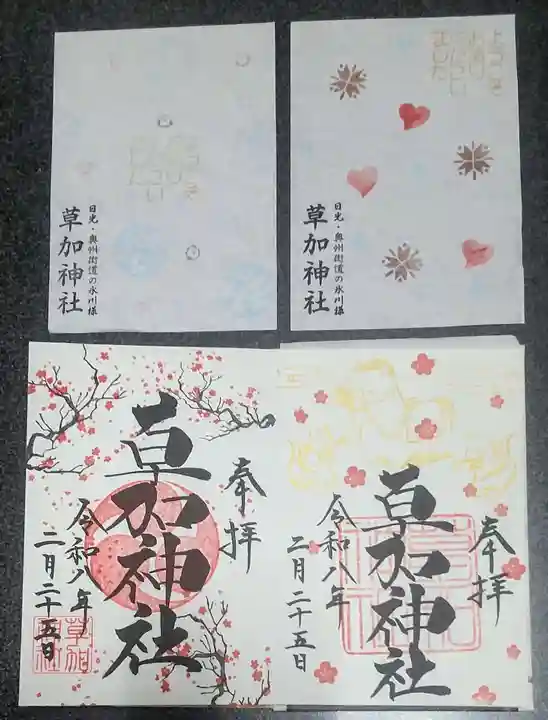 よつつじを
日光・奥州街道の氷川様
草加神社
日光・奥州街道の氷川様
草加神社
奉拝
草加神社
令和八年
二月二十五日
草加
奉拝
草加神社
令和八年
二月二十五日